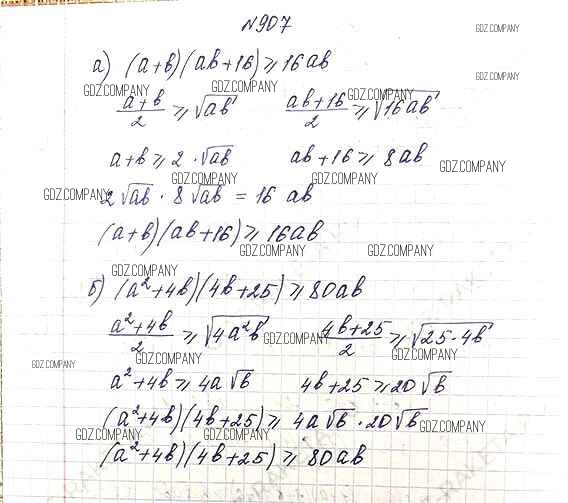 №907
GDZ.COMPANY
а) (a+b)(ab+16) ⩾ 16ab
GDZ.COMPANY
GDZ.COMPANY GDZ.COMPANY GDZ.COMPANY
(a+b)/2 ⩾ √ab (ab+16)/2 ⩾ √16ab
a+b ⩾ 2·√ab ab+16 ⩾ 8ab
GDZ.COMPANY
GDZ.COMPANY GDZ.COMPANY
GDZ.COMPANY
2√ab · 8√ab = 16 ab
(a+b)(ab+16) ⩾ 16ab
GDZ.COMPANY GDZ.COMPANY
GDZ.COMPANY
б) (a²+4b)(4b+25) ⩾ 80ab
(a²+4b)/2 ⩾ √4a²b (4b+25)/2 ⩾ √25·4b
GDZ.COMPANY GDZ.COMPANY GDZ.COMPANY
GDZ.COMPANY GDZ.COMPANY
a²+4b ⩾ 4a√b 4b+25 ⩾ 20√b
(a²+4b)(4b+25) ⩾ 4a√b · 20√b
GDZ.COMPANY GDZ.COMPANY GDZ.COMPANY
(a²+4b)(4b+25) ⩾ 80ab